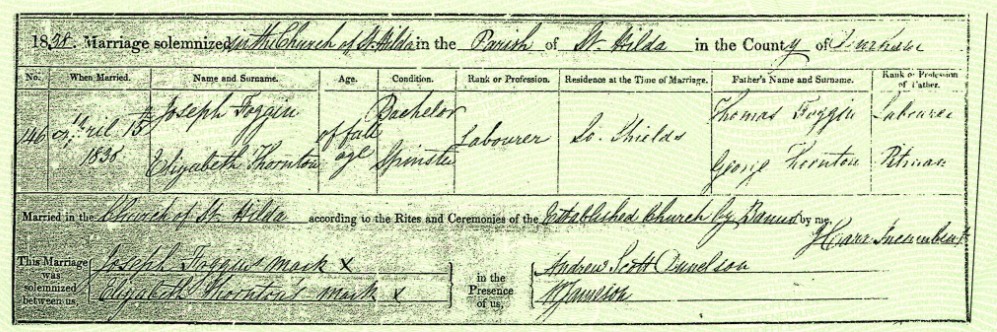 1838. Marriage solemnized in the Church of St. Hilda in the Parish of St. Hilda in the County of Durham
No. When Married. Name and Surname. Age. Condition. Rank or Profession. Residence at the Time of Marriage. Father's Name and Surname. Rank or Profession of Father.
146 April 15th 1838 Joseph Foggin of full age Bachelor Labourer So. Shields Thomas Foggin Labourer
Elizabeth Thornton Spinster George Thornton Pitman
Married in the Church of St. Hilda according to the Rites and Ceremonies of the Established Church by Banns by me,
Incumbent
This Marriage was solemnized between us, Joseph Foggins mark x in the Presence of us, Andrew Scott
Elizabeth Thornton's mark x Jameson